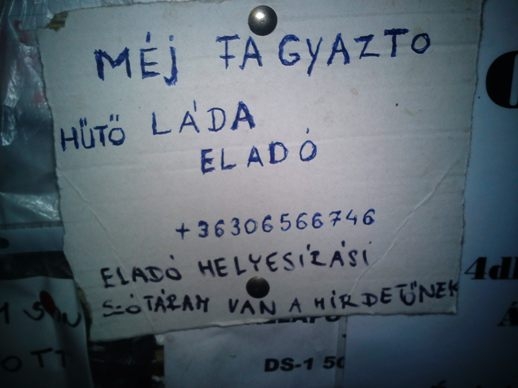 MÉJ FAGYAZTO
HŰTŐ LÁDA
ELADÓ
+36306566746
ELADÓ HELYESÍRÁSI
SZÓTÁRAM VAN A HIRDETŐNEK
4d
DS-1 50
OTT